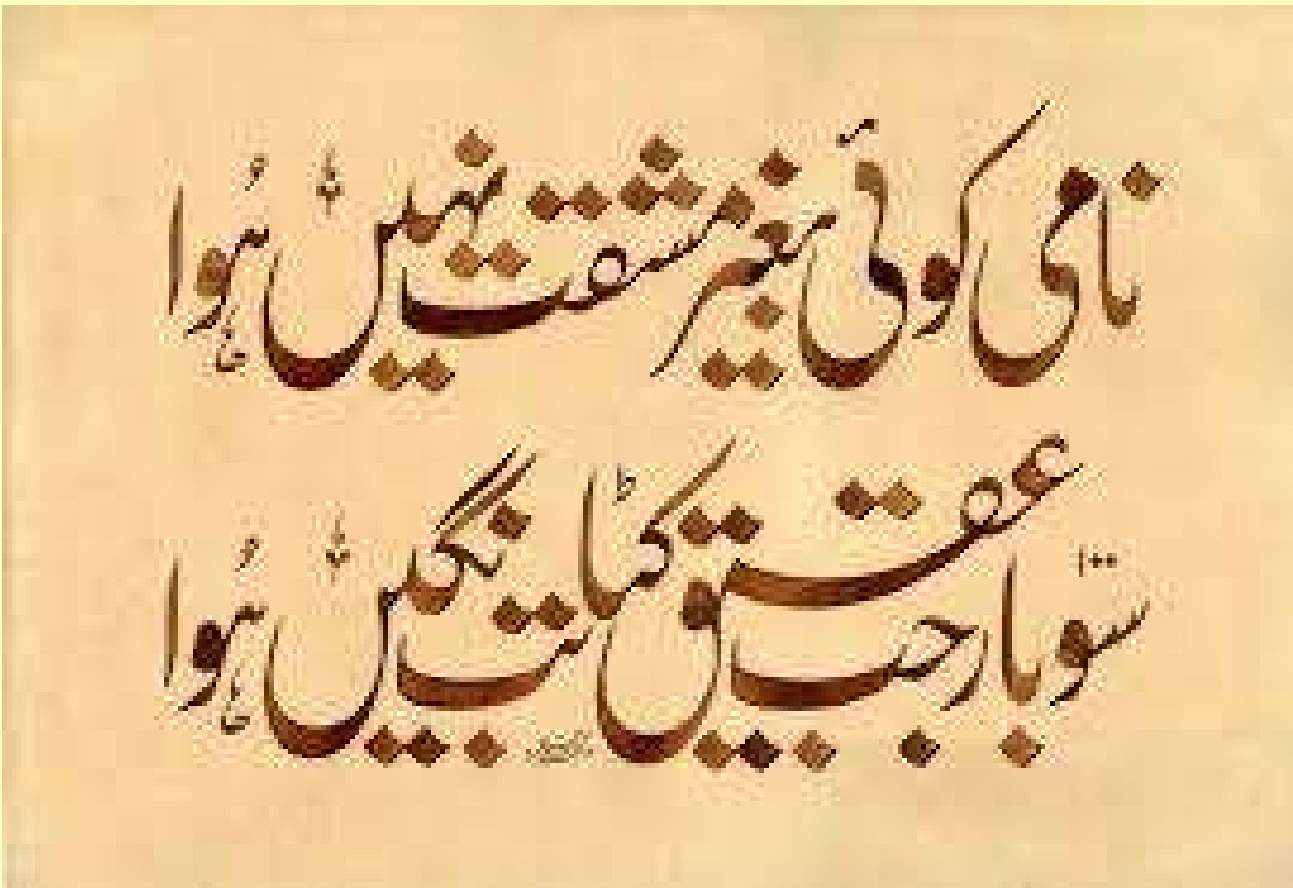 نامی کوئی بغیر مشقت نہیں ہُوا
سَو بار جب عقیق کٹا تب نگیں ہُوا